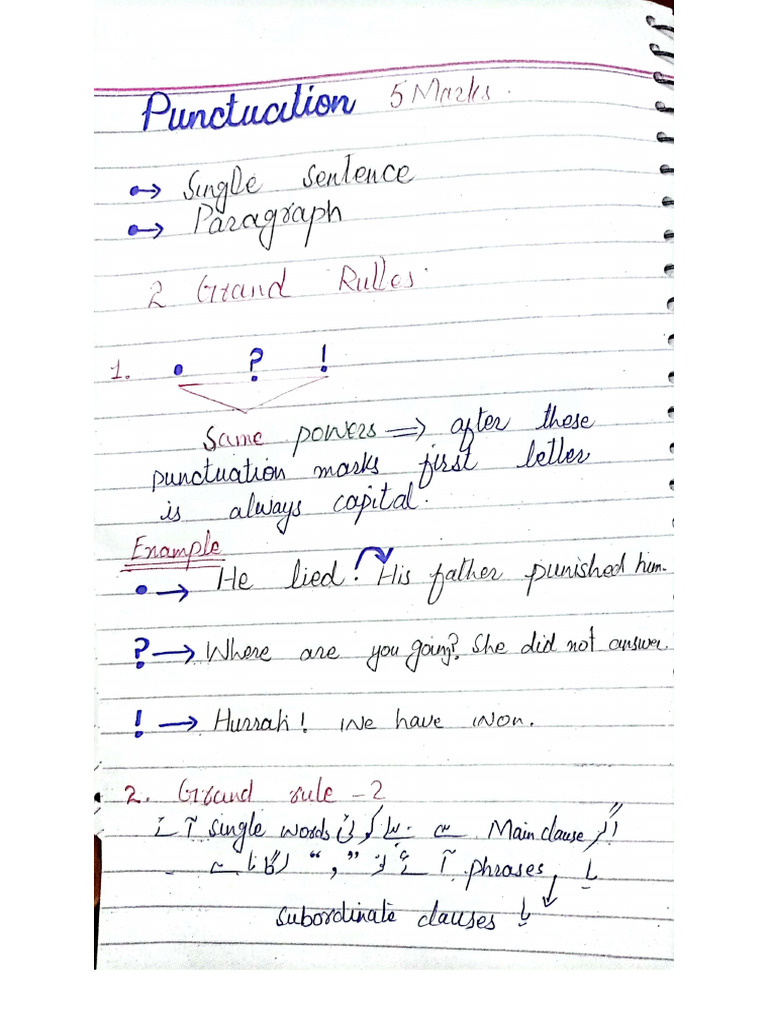 Punctuation 5 Marks.
•→ Single sentence
•→ Paragraph
2 Grand Rulles.
1. • ? !
Same powers ⇒ after these
punctuation marks first letter
is always capital.
Example
• → He lied. His father punished him.
? → Where are you going? She did not answer.
! → Hurrah! We have won.
2. Grand rule -2
اگر Main clause سے پہلے کوئی single words آئے
یا phrases آئے تو "," لگانا ہے
یا subordinate clauses